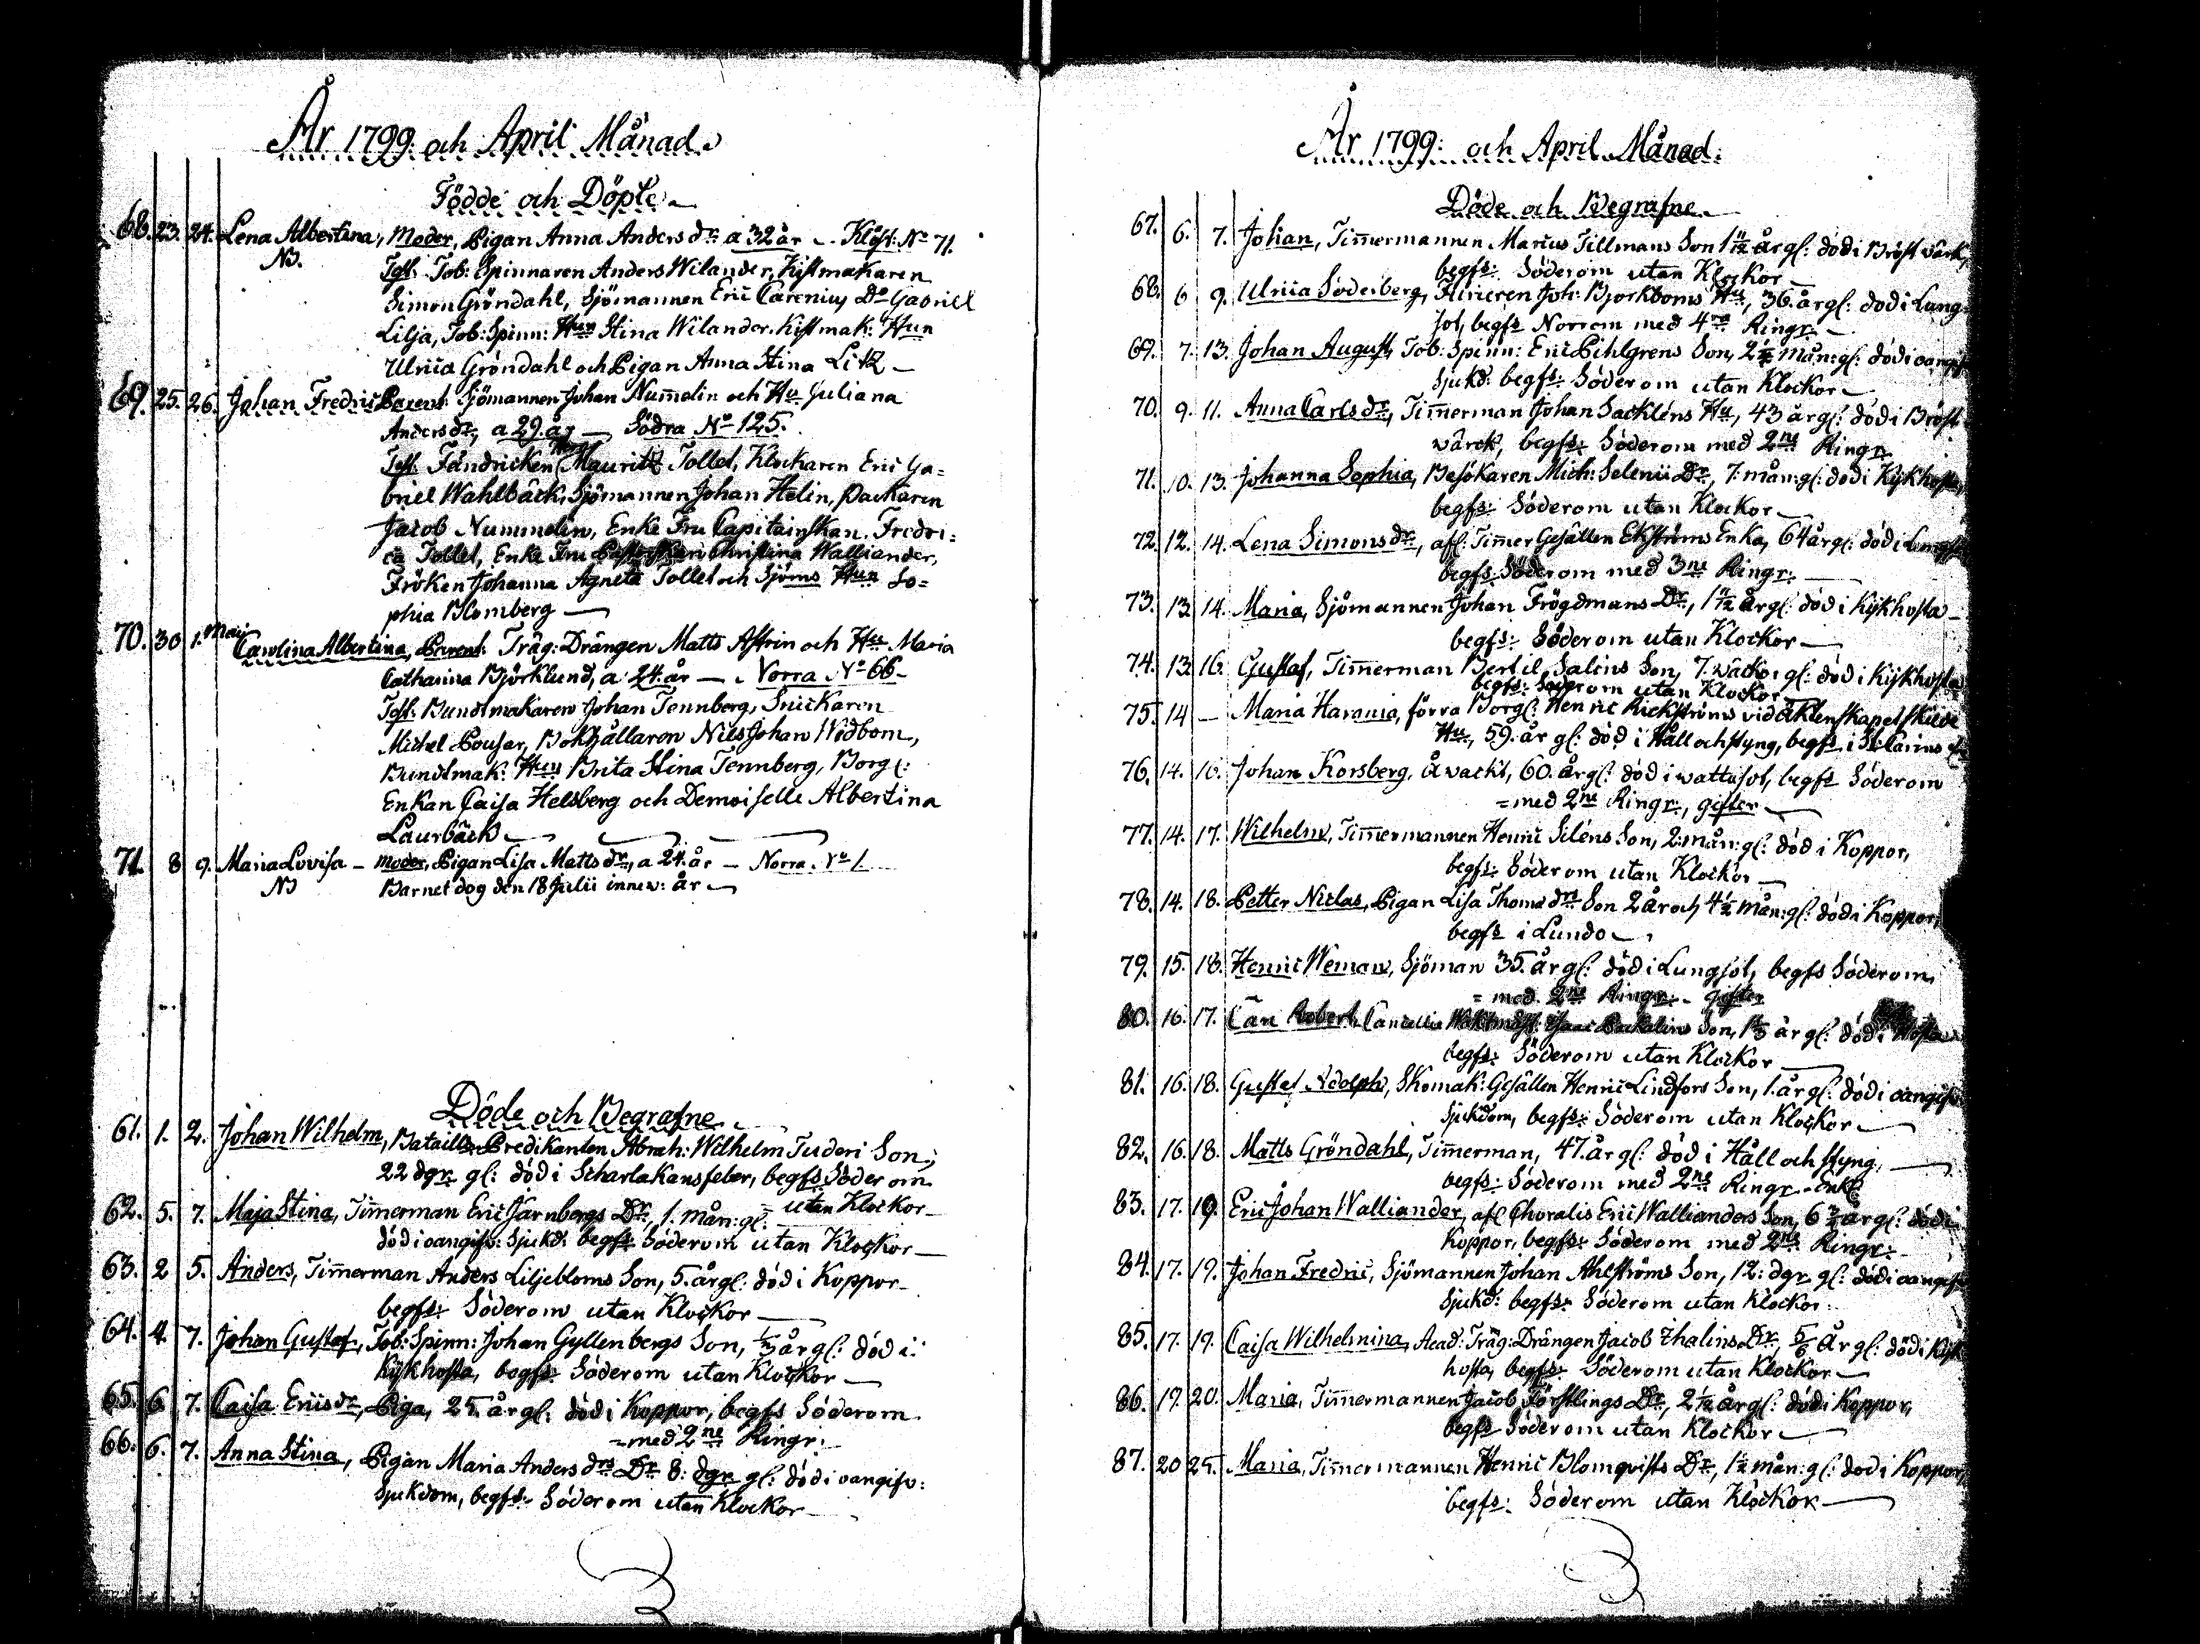 År 1799. och April Månad.
Födde och Döpte
68. 23. 24. Lena Albertina, Moder, Pigan Anna Anders dr. a 32 år - Klöst: No 71.
Test. Tob: Spinnaren Anders Wilander, Kistmakaren
Simon Gröndahl, Sjömannen Eric Carenius Do Gabriel
Lilja, Tob: Spinn: Hun Stina Wilander. Kistmak: Hun
Ulrica Gröndahl och Pigan Anna Stina Litz
69. 25. 26. Johan Fredric Parent: Sjömannen Johan Num̄elin och Hu Juliana
Anders dr, a 29. år — Södra No 125.
Test. Fändricken Mauritz Tollet, Klockaren Eric Ga=
briel Wahlbäck, Sjömannen Johan Helin, Packaren
Jacob Nummelin, Enke Fru Capitainskan. Fredri=
ca Tollet, Enke Fru Christina Walliander,
Fröken Johanna Agneta Tollet och Sjöms Hun So=
phia Blomberg —
70. 30 1. Maii Carolina Albertina, Parent: Träg: Drängen Matts Astrin och Hu Maria
Catharina Björklund, a 24. år — Norra No 66 -
Test. Bundtmakaren Johan Tennberg, Snickaren
Michel Pousar, Bokhållaren Nils Johan Widbom,
Bundtmak: Hun Brita Stina Tennberg, Borgl:
Enkan Caisa Helsberg och Demoiselle Albertina
Laurbäck —
71. 8 9. Maria Lovisa - Moder, Pigan Lisa Matts dr, a 24. år - Norra. No 1
Barnet dog den 18 Julii innew: år
Döde och Begrafne
61. 1. 2. Johan Wilhelm, Bataills Predikanten Abrah: Wilhelm Tuderi Son,
22 dgr. gl: död i Scharlakansfeber, begfs Söder om
= utan Klockor
62. 5. 7. Maja Stina, Tim̄erman Eric Järnbergs Dr, 1. mån: gl:
död i oangifv: sjukd: begfs: Söderom utan Klockor —
63. 2 5. Anders, Tim̄erman Anders Liljebloms Son, 5. år gl: död i Koppor
begfs: Söderom utan Klockor —
64. 4. 7. Johan Gustaf, Tob: Spinn: Johan Gyllenbergs Son, 1/3 år gl: död i
Kykhosta, begfs: Söderom utan Klockor —
65. 6. 7. Caisa Erics dr, Piga, 25. år gl: död i Koppor, begfs Söderom
= med 2ne Ringr:
66. 6. 7. Anna Stina, Pigan Maria Anders drs Dr 8: dgr gl: död i oangifv:
sjukdom, begfs: Söderom utan Klockor
År 1799: och April Månad:
Döde och Begrafne
67. 6. 7. Johan, Tim̄ermannen Marius Tillmans Son 1 år gl: död i Bröst värk,
begfs: Söderom utan Klockor
68. 6 9. Ulrica Söderberg, Joh: Björkboms Hu, 36. år gl: död i Lung
sot, begfs Norrom med 4ra Ringr:
69. 7. 13. Johan August, Tob: Spinn: Eric Pihlgrens Son, 2 1/2 mån: gl: död i oangifv
sjukd: begfs: Söderom utan Klockor
70. 9. 11. Anna Carls dr, Tim̄erman Johan Sackléns Hu, 43 år gl: död i Bröst
wärck, begfs: Söderom med 2ne Ringr
71. 10. 13. Johanna Sophia, Besökaren Mich: Selenii Dr, 7. mån: gl: död i Kykhosta,
begfs: Söderom utan Klockor
72. 12. 14. Lena Simons dr, afl: Tim̄er Gesällen Ekströms Enka, 64 år gl: död i Lungsot
begfs: Söderom med 3ne Ringr:
73. 13 14. Maria, Sjömannen Johan Frögdmans Dr, 1 år gl: död i Kykhosta
begfs: Söderom utan Klockor
74. 13 16. Gustaf, Tim̄erman Bertil Salins Son, 7. wackor gl: död i Kykhosta
begfs: Söderom utan Klockor
75. 14 — Maria Havania, förra Borgl: Henric Rickströms vid äktenskapet skilde
Hu, 59. år gl: död i Håll och styng, begfs i St: Carins
76. 14. 16. Johan Korsberg, å wackt, 60. år gl: död i wattusot, begfs Söderom
= med 2ne Ringr:, gifter
77. 14. 17. Wilhelm, Tim̄ermannen Henric Siléns Son, 2: mån: gl: död i Koppor,
begfs: Söderom utan Klockor
78. 14. 18. Petter Niclas, Pigan Lisa Thoms drs Son 2 år och 4 1/2 mån: gl: död i Koppor,
begfs i Lundo
79. 15. 18. Henric Weman, Sjöman 35. år gl: död i Lungsot, begfs Söderom,
= med 2ne Ringr: - gifter
80. 16. 17. Carl Robert, Cancellie Waktmäst: Isaac Son, år gl: död i
begfs: Söderom utan Klockor
81. 16. 18. Gustaf Adolph, Skomak: Gesällen Henric Lindfors Son, 1. år gl: död i oangifv:
sjukdom, begfs: Söderom utan Klockor
82. 16. 18. Matts Gröndahl, Tim̄erman, 47. år gl: död i Håll och styng,
begfs: Söderom med 2ne Ringr - Enkl:
83. 17. 19. Eric Johan Walliander, afl Choralis Eric Wallianders Son, 6 år gl: död i
Koppor, begfs: Söderom med 2ne Ringr:
84. 17. 19. Johan Fredric, Sjömannen Johan Ahlströms Son, 12: dgr gl: död i oangifv
sjukd: begfs: Söderom utan Klockor:
85. 17. 19. Caisa Wilhelmina, Acad: Träg: Drängen Jacob Thalins Dr, 5/6 år gl: död i Kyk
hosta, begfs: Söderom utan Klockor
86. 19. 20. Maria, Tim̄ermannen Jacob Förstlings Dr, 2 1/2 år gl: död i Koppor,
begfs Söderom utan Klockor
87. 20 25. Maria, Tim̄ermannen Henric Blomqvists Dr, 1 1/2 mån: gl: död i Koppor,
begfs: Söderom utan Klockor